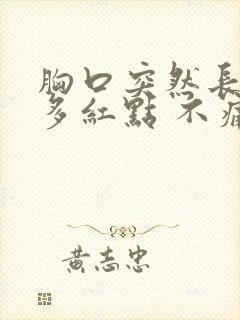 胸口突然長
多紅點 不痛
黃志忠